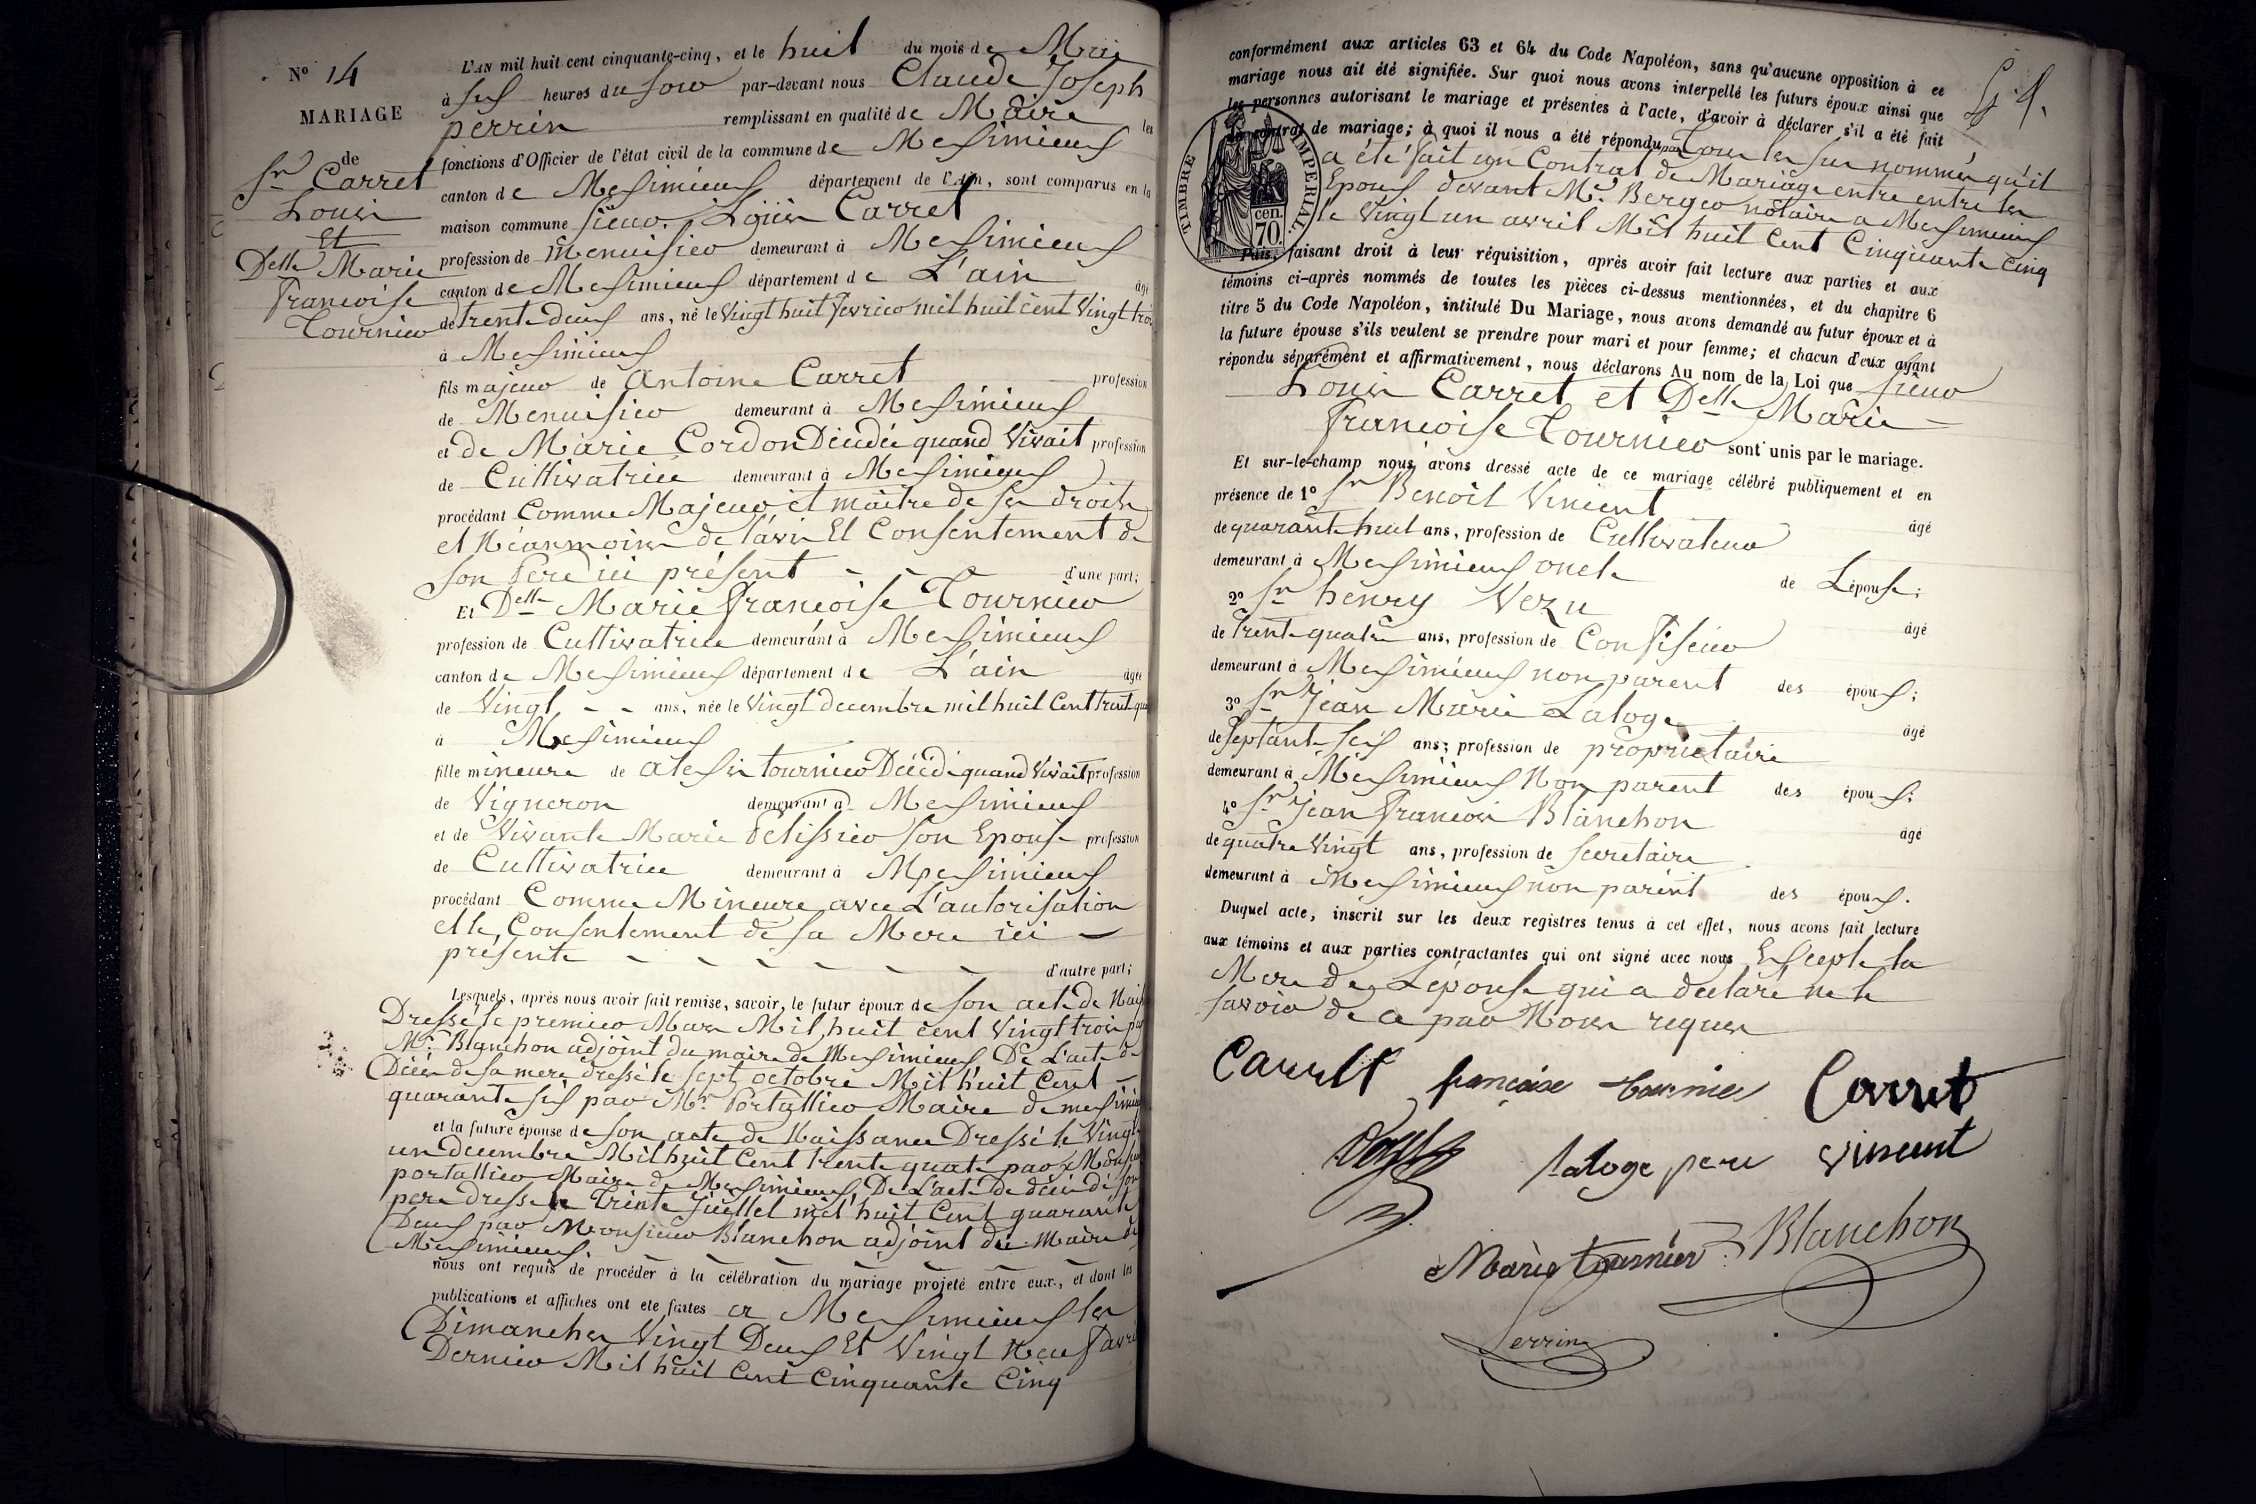 N° 14
MARIAGE
de
Sr Carret
Louis
Et
Delle Marie
Francoise
Tournier
L'AN mil huit cent cinquante-cinq, et le huit du mois de Mai
à six heures du soir par-devant nous Claude Joseph
perrin remplissant en qualité de Maire les
fonctions d'Officier de l'état civil de la commune de Meximieux
canton de Meximieux département de l'Ain, sont comparus en la
maison commune sieur Louis Carret
profession de Menuisier demeurant à Meximieux
canton de Meximieux département de L'ain âgé
de trente deux ans, né le vingt huit fevrier mil huit cent vingt trois
à Meximieux
fils majeur de Antoine Carret profession
de Menuisier demeurant à Meximieux
et de Marie Cordon Décédée quand Vivait profession
de Cultivatrice demeurant à Meximieux
procédant Comme Majeur et maitre de ses droits
et Néanmoins de l'avis Et Consentement de
son Pere ici présent d'une part;
Et Delle Marie francoise Tournier
profession de Cultivatrice demeurant à Meximieux
canton de Meximieux département de L'ain âgée
de Vingt ans, née le Vingt decembre mil huit Cent trent qua
à Meximieux
fille mineure de alexis tournier Décédé quand Vivait profession
de Vigneron demeurant à Meximieux
et de Vivante Marie Pelissier son Epouse profession
de Cultivatrice demeurant à Meximieux
procédant Comme Mineure avec L'autorisation
et le Consentement de sa Mere ici
présente d'autre part;
Lesquels, après nous avoir fait remise, savoir, le futur époux de son acte de Nais
Dressé le premier Mars Mil huit cent vingt trois par
Mr Blanchon adjoint du maire de Meximieux De L'acte de
Décès de sa mere dressé le sept octobre Mil huit Cent
quarante six par Mr Portallier Maire de meximieux
et la future épouse de son acte de Naissance Dressé le Vingt
un decembre Mil huit Cent trente quate par Monsieur
portallier Maire de Meximieux De L'acte De décès de son
pere dresse le trente Juillet mil huit Cent quarante
Deux par Monsieur Blanchon adjoint du Maire de
Meximieux.
nous ont requis de procéder à la célébration du mariage projeté entre eux, et dont les
publications et affiches ont été faites a Meximieux les
Dimanches Vingt Deux Et Vingt Neuf avril
Dernier Mil huit Cent Cinquante Cinq
conformément aux articles 63 et 64 du Code Napoléon, sans qu'aucune opposition à ce
mariage nous ait été signifiée. Sur quoi nous avons interpellé les futurs époux ainsi que
les personnes autorisant le mariage et présentes à l'acte, d'avoir à déclarer s'il a été fait
un contrat de mariage; à quoi il nous a été répondu par Tous les sus nommés qu'il
a été fait un Contrat de Mariage entre entre les
Epoux devant Mr Berger notaire a Meximieux
le Vingt un avril Mil huit Cent Cinquante Cinq
TIMBRE IMPERIAL.
70 cen.
Puis, faisant droit à leur réquisition, après avoir fait lecture aux parties et aux
témoins ci-après nommés de toutes les pièces ci-dessus mentionnées, et du chapitre 6
titre 5 du Code Napoléon, intitulé Du Mariage, nous avons demandé au futur époux et à
la future épouse s'ils veulent se prendre pour mari et pour femme; et chacun d'eux ayant
répondu séparément et affirmativement, nous déclarons Au nom de la Loi que sieur
Louis Carret et Delle Marie
francoise Tournier sont unis par le mariage.
Et sur-le-champ nous avons dressé acte de ce mariage célébré publiquement et en
présence de 1° Sr Benoit Vincent âgé
de quarante huit ans, profession de Cultivateur
demeurant à Meximieux oncle de Lépouse;
2° Sr henry Vezu âgé
de trente quatre ans, profession de Confiseur
demeurant à Meximieux non parent des époux;
3° Sr Jean Marie Laloge âgé
de septante six ans; profession de proprietaire
demeurant à Meximieux Non parent des époux;
4° Sr Jean Francois Blanchon âgé
de quatre Vingt ans, profession de Secretaire
demeurant à Meximieux non parent des époux.
Duquel acte, inscrit sur les deux registres tenus à cet effet, nous avons fait lecture
aux témoins et aux parties contractantes qui ont signé avec nous Excepte la
Mere De Lépouse qui a declaré ne le
savoir de ce par Nous requis
Carret françoise tournier Carret
laloge pere vincent
Marie tournier Blanchon
Perrin